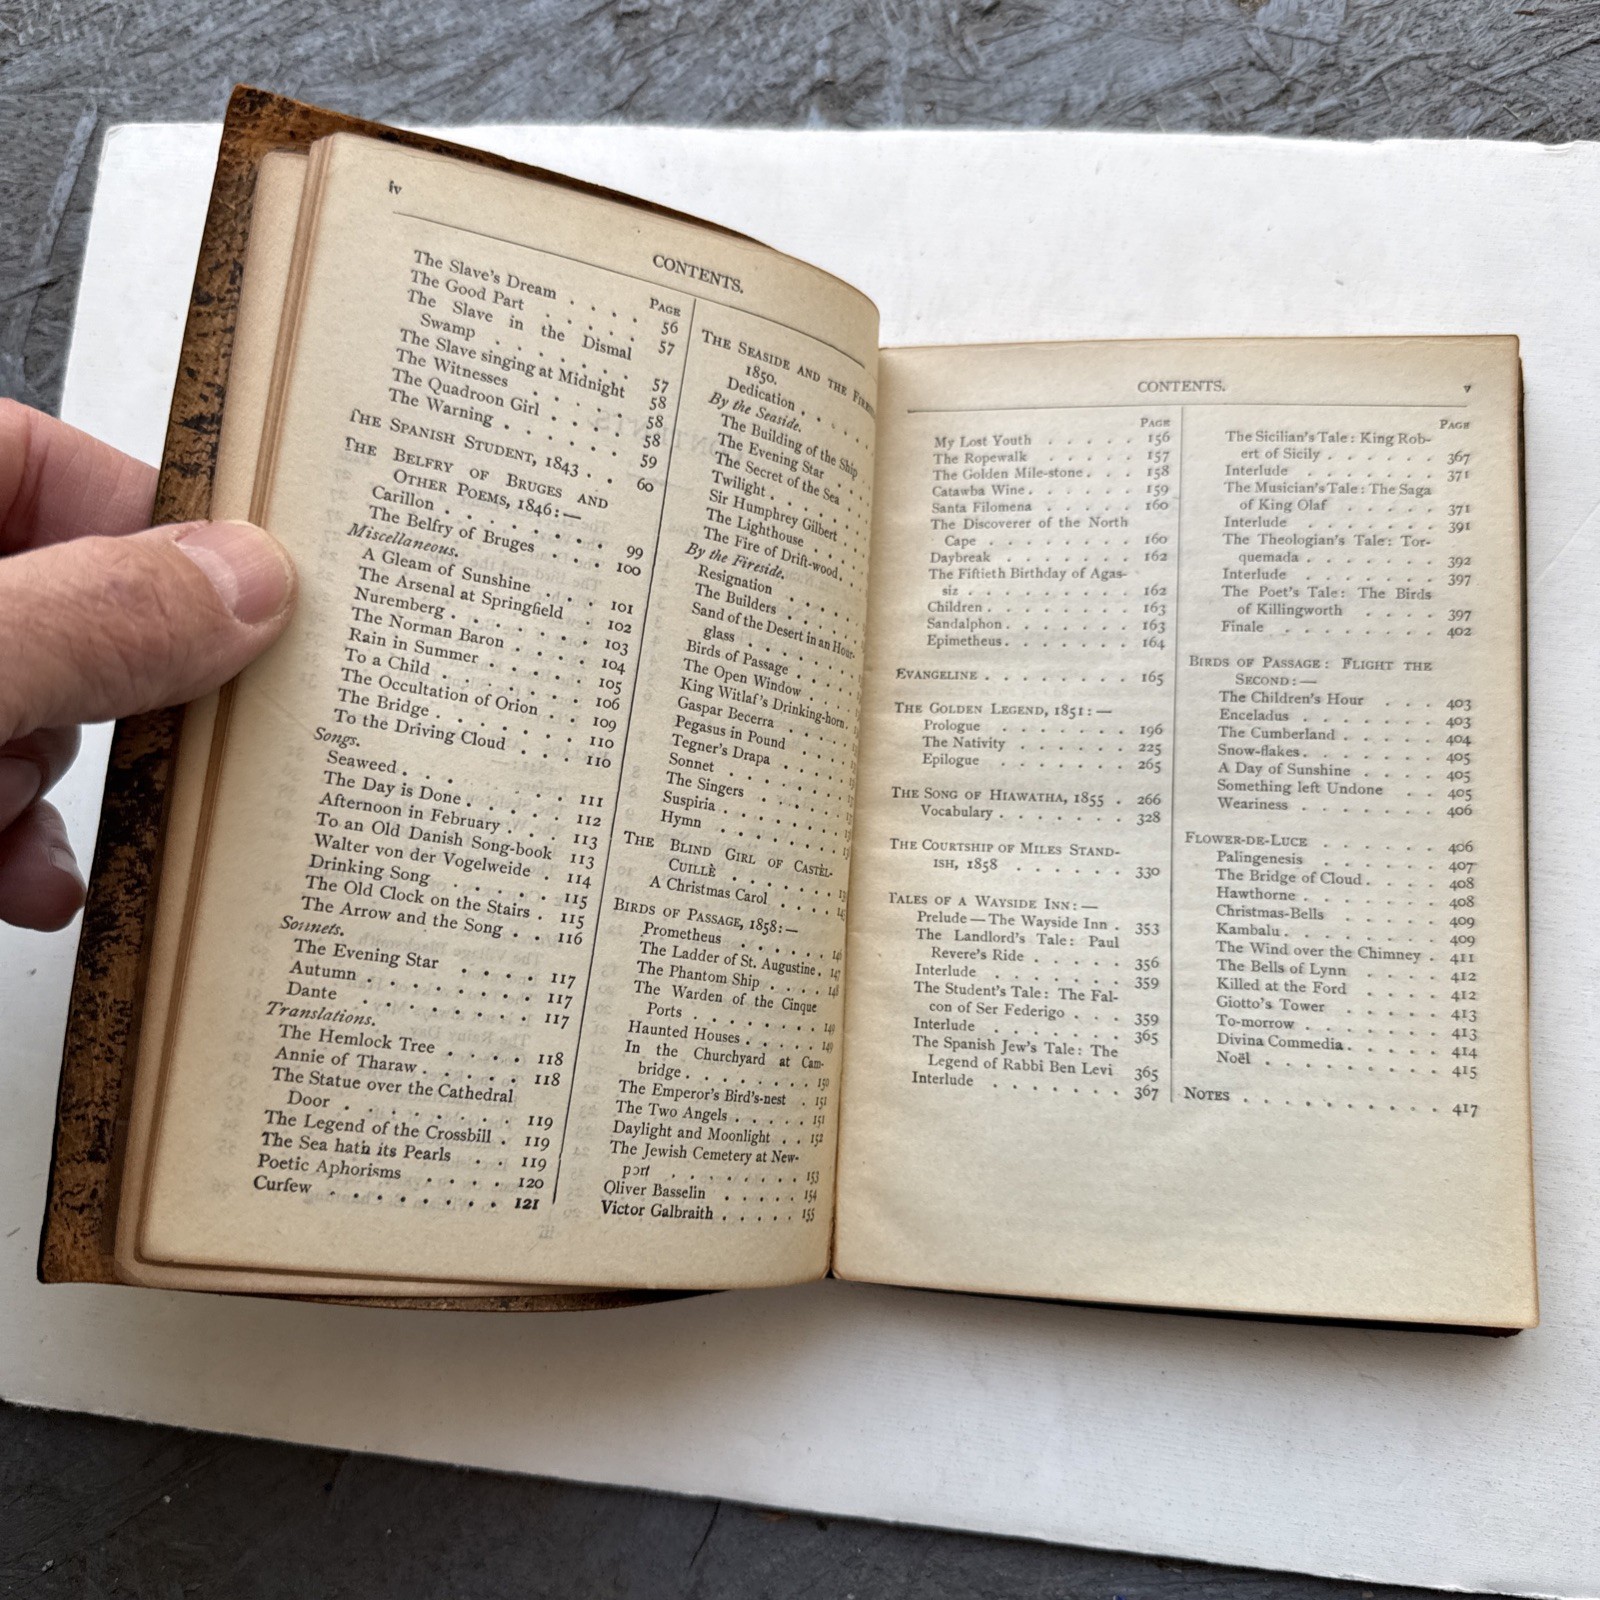 iv
CONTENTS.
PAGE
The Slave's Dream . . . . 56
The Good Part . . . . . 57
The Slave in the Dismal
Swamp . . . . . . . 57
The Slave singing at Midnight 58
The Witnesses . . . . . 58
The Quadroon Girl . . . . 58
The Warning . . . . . . 59
THE SPANISH STUDENT, 1843 . . 60
THE BELFRY OF BRUGES AND
OTHER POEMS, 1846:—
Carillon . . . . . . . 99
The Belfry of Bruges . . . 100
Miscellaneous.
A Gleam of Sunshine . . . 101
The Arsenal at Springfield . 102
Nuremberg . . . . . . . 103
The Norman Baron . . . . 104
Rain in Summer . . . . . 105
To a Child . . . . . . . 106
The Occultation of Orion . . 109
The Bridge . . . . . . . 110
To the Driving Cloud . . . 110
Songs.
Seaweed . . . . . . . 111
The Day is Done . . . . . 112
Afternoon in February . . . 113
To an Old Danish Song-book 113
Walter von der Vogelweide . 114
Drinking Song . . . . . 115
The Old Clock on the Stairs . 115
The Arrow and the Song . . 116
Sonnets.
The Evening Star . . . . 117
Autumn . . . . . . . 117
Dante . . . . . . . 117
Translations.
The Hemlock Tree . . . . 118
Annie of Tharaw . . . . . 118
The Statue over the Cathedral
Door . . . . . . . 119
The Legend of the Crossbill . 119
The Sea hath its Pearls . . 119
Poetic Aphorisms . . . . 120
Curfew . . . . . . . . 121
THE SEASIDE AND THE
1850.
Dedication . . . .
By the Seaside.
The Building of the Ship
The Evening Star . . .
The Secret of the Sea . .
Twilight . . . . . .
Sir Humphrey Gilbert . .
The Lighthouse . . . .
The Fire of Drift-wood . .
By the Fireside.
Resignation . . . . .
The Builders . . . . .
Sand of the Desert in an Hour-
glass . . . . . . .
Birds of Passage . . . .
The Open Window . . . .
King Witlaf's Drinking-horn .
Gaspar Becerra . . . . .
Pegasus in Pound . . . .
Tegner's Drapa . . . . .
Sonnet . . . . . . .
The Singers . . . . . .
Suspiria . . . . . . .
Hymn . . . . . . .
THE BLIND GIRL OF CASTÈL-
CUILLÈ . . . . . . .
A Christmas Carol . . . .
BIRDS OF PASSAGE, 1858:—
Prometheus . . . . . 146
The Ladder of St. Augustine . 147
The Phantom Ship . . . . 148
The Warden of the Cinque
Ports . . . . . . . 149
Haunted Houses . . . . . 149
In the Churchyard at Cam-
bridge . . . . . . . 150
The Emperor's Bird's-nest . 151
The Two Angels . . . . . 151
Daylight and Moonlight . . 152
The Jewish Cemetery at New-
port . . . . . . . 153
Oliver Basselin . . . . . 154
Victor Galbraith . . . . . 155
CONTENTS. v
PAGE
My Lost Youth . . . . . 156
The Ropewalk . . . . . 157
The Golden Mile-stone . . . 158
Catawba Wine . . . . . . 159
Santa Filomena . . . . . 160
The Discoverer of the North
Cape . . . . . . . 160
Daybreak . . . . . . . 162
The Fiftieth Birthday of Agas-
siz . . . . . . . . 162
Children . . . . . . . . 163
Sandalphon . . . . . . 163
Epimetheus . . . . . . . 164
EVANGELINE . . . . . . . 165
THE GOLDEN LEGEND, 1851:—
Prologue . . . . . . 196
The Nativity . . . . . . 225
Epilogue . . . . . . 265
THE SONG OF HIAWATHA, 1855 . 266
Vocabulary . . . . . . . 328
THE COURTSHIP OF MILES STAND-
ISH, 1858 . . . . . . 330
TALES OF A WAYSIDE INN:—
Prelude — The Wayside Inn . 353
The Landlord's Tale: Paul
Revere's Ride . . . . . 356
Interlude . . . . . . 359
The Student's Tale: The Fal-
con of Ser Federigo . . . 359
Interlude . . . . . . 365
The Spanish Jew's Tale: The
Legend of Rabbi Ben Levi 365
Interlude . . . . . . 367
PAGE
The Sicilian's Tale: King Rob-
ert of Sicily . . . . . . 367
Interlude . . . . . . 371
The Musician's Tale: The Saga
of King Olaf . . . . . 371
Interlude . . . . . . 391
The Theologian's Tale: Tor-
quemada . . . . . . 392
Interlude . . . . . . 397
The Poet's Tale: The Birds
of Killingworth . . . . 397
Finale . . . . . . . 402
BIRDS OF PASSAGE: FLIGHT THE
SECOND:—
The Children's Hour . . . 403
Enceladus . . . . . . 403
The Cumberland . . . . . 404
Snow-flakes . . . . . . . 405
A Day of Sunshine . . . . 405
Something left Undone . . 405
Weariness . . . . . . 406
FLOWER-DE-LUCE . . . . . . 406
Palingenesis . . . . . 407
The Bridge of Cloud . . . . 408
Hawthorne . . . . . . 408
Christmas-Bells . . . . 409
Kambalu . . . . . . . 409
The Wind over the Chimney . 411
The Bells of Lynn . . . . 412
Killed at the Ford . . . . 412
Giotto's Tower . . . . . 413
To-morrow . . . . . . 413
Divina Commedia . . . . . 414
Noël . . . . . . . . 415
NOTES . . . . . . . . . . 417